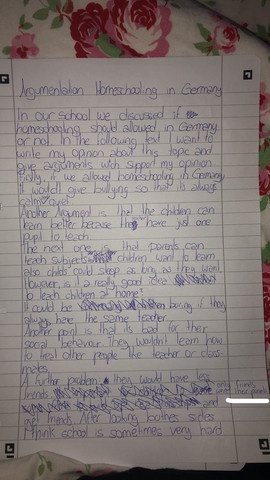 Argumentation Homeschooling in Germany
In our school we discussed if
homeschooling should allowed in Germany
or not. In the following text I want to
write my opinion about this topic and
give arguments wich support my opinion.
if we allowed homeschooling in Germany
it would give bullying so that its always
calm
Another Argument is that the children can
learn better because they have just one
pupil to teach.
The next one is that parents can
teach subjects children want to learn
also childs could sleep as long as they want.
However, is it a really good idea
to learn children at home?
It could be boring if they
always have the same teacher.
Another point is that its bad for their
social behaviour. They wouldn't learn how
to treat other people like teacher or class-
mates.
A further problem they would have less
friends
and
get friends. After looking boothes sides
I think school is sometimes very hard